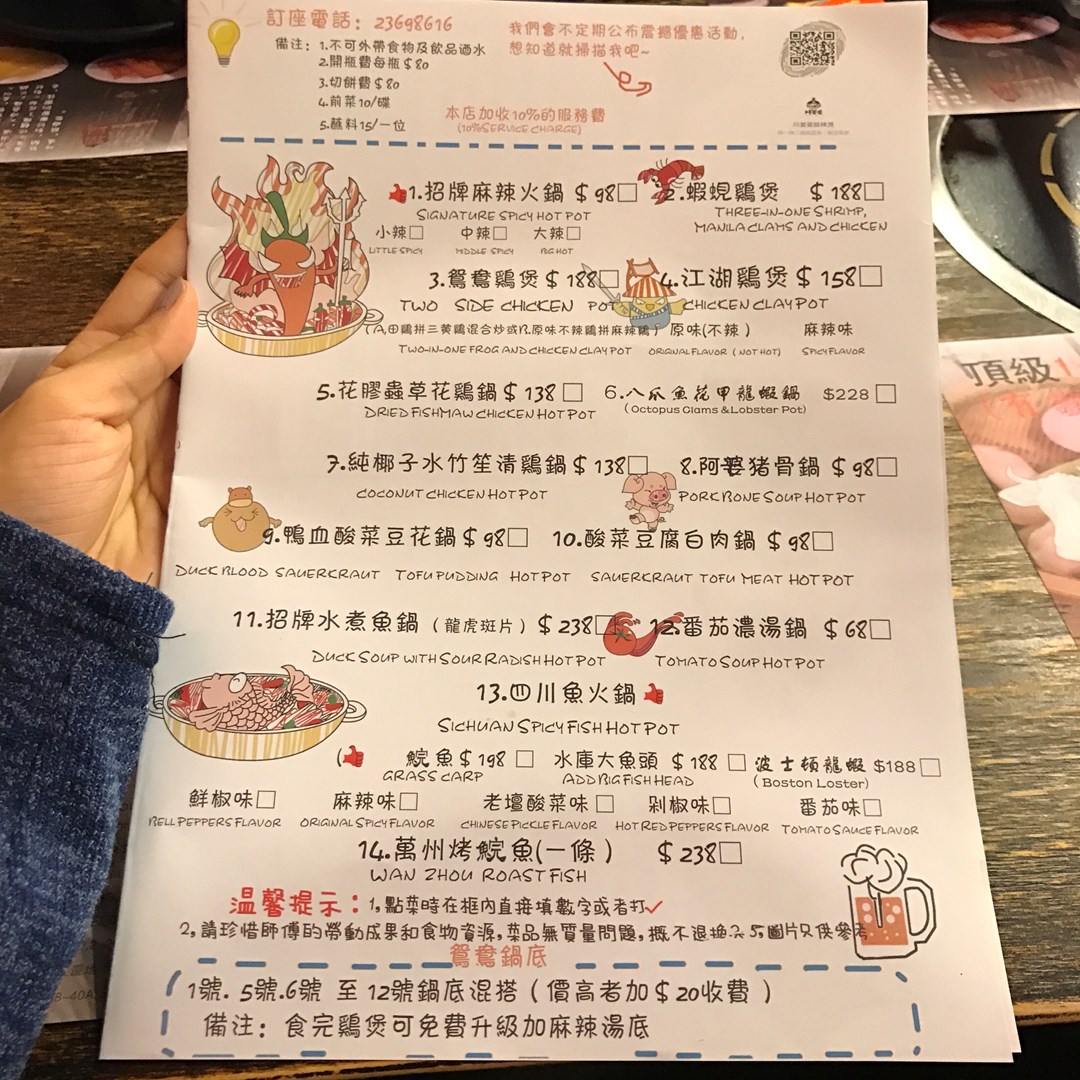 訂座電話：23698616
備注：1.不可外帶食物及飲品酒水
2.開瓶費每瓶$80
3.切餅費$80
4.前菜10/碟
5.蘸料15/一位
我們會不定期公布震撼優惠活動，
想知道就掃描我吧~
本店加收10%的服務費
(10%SERVICE CHARGE)
1.招牌麻辣火鍋 $98□
SIGNATURE SPICY HOT POT
小辣□ 中辣□ 大辣□
LITTLE SPICY MIDDLE SPICY BIG HOT
2.蝦蜆鷄煲 $188□
THREE-IN-ONE SHRIMP,
MANILA CLAMS AND CHICKEN
3.鴛鴦鷄煲 $188□ 4.江湖鷄煲 $158□
TWO SIDE CHICKEN POT CHICKEN CLAY POT
(A.田鷄拼三黄鷄混合炒或B.原味不辣鷄拼麻辣鷄) 原味(不辣) 麻辣味
TWO-IN-ONE FROG AND CHICKEN CLAY POT ORIGINAL FLAVOR (NOT HOT) SPICY FLAVOR
5.花膠蟲草花鷄鍋$138□ 6.八爪魚花甲龍蝦鍋 $228□
DRIED FISHMAW CHICKEN HOT POT (Octopus Clams &Lobster Pot)
7.純椰子水竹笙清鷄鍋$138□ 8.阿婆猪骨鍋 $98□
COCONUT CHICKEN HOT POT PORK BONE SOUP HOT POT
9.鴨血酸菜豆花鍋$98□ 10.酸菜豆腐白肉鍋 $98□
DUCK BLOOD SAUERKRAUT TOFU PUDDING HOT POT SAUERKRAUT TOFU MEAT HOT POT
11.招牌水煮魚鍋（龍虎斑片）$238□ 12.番茄濃湯鍋 $68□
DUCK SOUP WITH SOUR RADISH HOT POT TOMATO SOUP HOT POT
13.四川魚火鍋
SICHUAN SPICY FISH HOT POT
( 鯇魚$198□ 水庫大魚頭 $188□ 波士頓龍蝦 $188□
GRASS CARP ADD BIG FISH HEAD (Boston Loster)
鮮椒味□ 麻辣味□ 老壇酸菜味□ 剁椒味□ 番茄味□
BELL PEPPERS FLAVOR ORIGINAL SPICY FLAVOR CHINESE PICKLE FLAVOR HOT RED PEPPERS FLAVOR TOMATO SAUCE FLAVOR
14.萬州烤鯇魚(一條) $238□
WAN ZHOU ROAST FISH
温馨提示：1,點菜時在框内直接填數字或者打✓
2,請珍惜師傅的勞動成果和食物資源,菜品無質量問題,概不退換
圖片只供參考
鴛鴦鍋底
1號.5號.6號 至 12號鍋底混搭（價高者加$20收費）
備注：食完鷄煲可免費升級加麻辣湯底
頂級